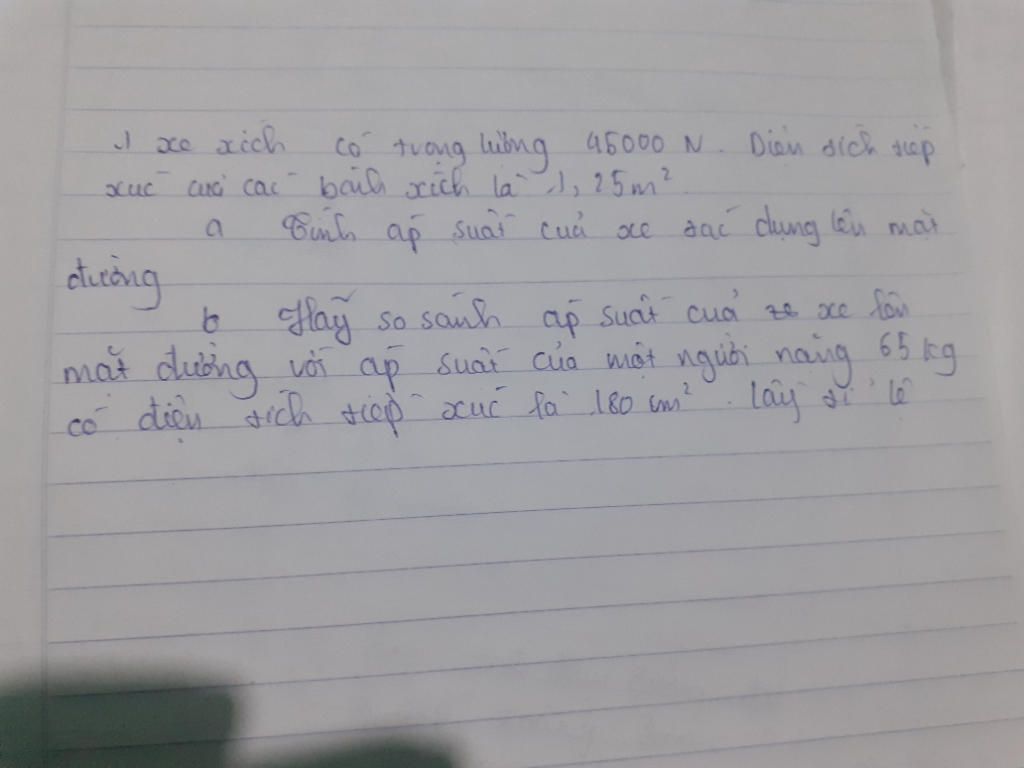 1 xe xích có trọng lường 45000 N. Diện tích tiếp
xúc các bánh xích là 1,25m²
a Tính áp suất của xe tác dụng lên mặt
đường
b Hãy so sánh áp suất của xe lên
mặt đường với áp suất của một người nặng 65 kg
có diện tích tiếp xúc là 180 cm². lấy tỉ lệ